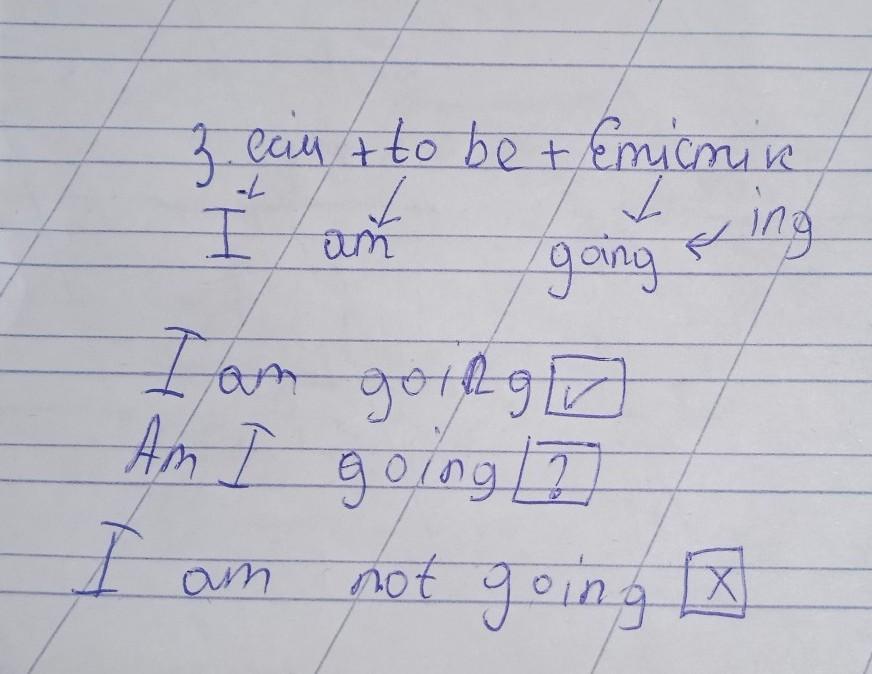 З. есім + to be + Етістік
I am going ing
I am going ✓
Am I going ?
I am not going X